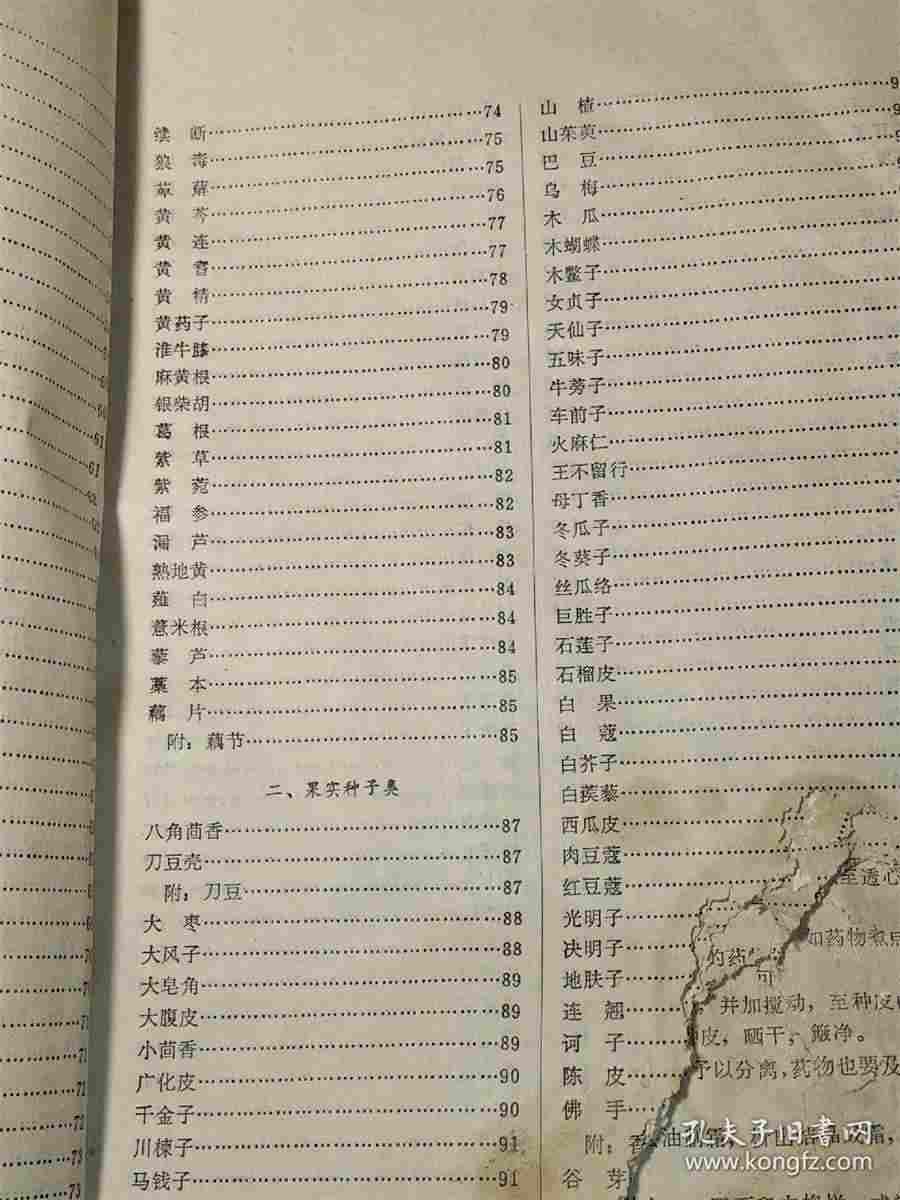 61
61
62
73
73
续　断……74
狼　毒……75
萆　薢……75
黄　芩……76
黄　连……77
黄　耆……77
黄　精……78
黄药子……79
淮牛膝……79
麻黄根……80
银柴胡……80
葛　根……81
紫　草……81
紫　菀……82
福　参……82
漏　芦……83
熟地黄……83
薤　白……84
薏米根……84
藜　芦……84
藁　本……85
藕　片……85
附：藕节……85
二、果实种子类
八角茴香……87
刀豆壳……87
附：刀豆……87
大　枣……88
大风子……88
大皂角……89
大腹皮……89
小茴香……89
广化皮……90
千金子……90
川楝子……91
马钱子……91
山　楂……9
山茱萸……9
巴　豆……9
乌　梅……
木　瓜……
木蝴蝶……
木鳖子……
女贞子……
天仙子……
五味子……
牛蒡子……
车前子……
火麻仁……
王不留行……
母丁香……
冬瓜子……
冬葵子……
丝瓜络……
巨胜子……
石莲子……
石榴皮……
白　果……
白　蔻……
白芥子……
白蒺藜……
西瓜皮……
肉豆蔻……
红豆蔻……
光明子……
决明子……
地肤子……
连　翘……
诃　子……
陈　皮……
佛　手……
附：香
谷　芽
至透心
如药物煮
的药
可
，并加搅动，至种皮
皮，晒干，簸净。
予以分离，药物也要及
油
孔夫子旧书网
www.kongfz.com